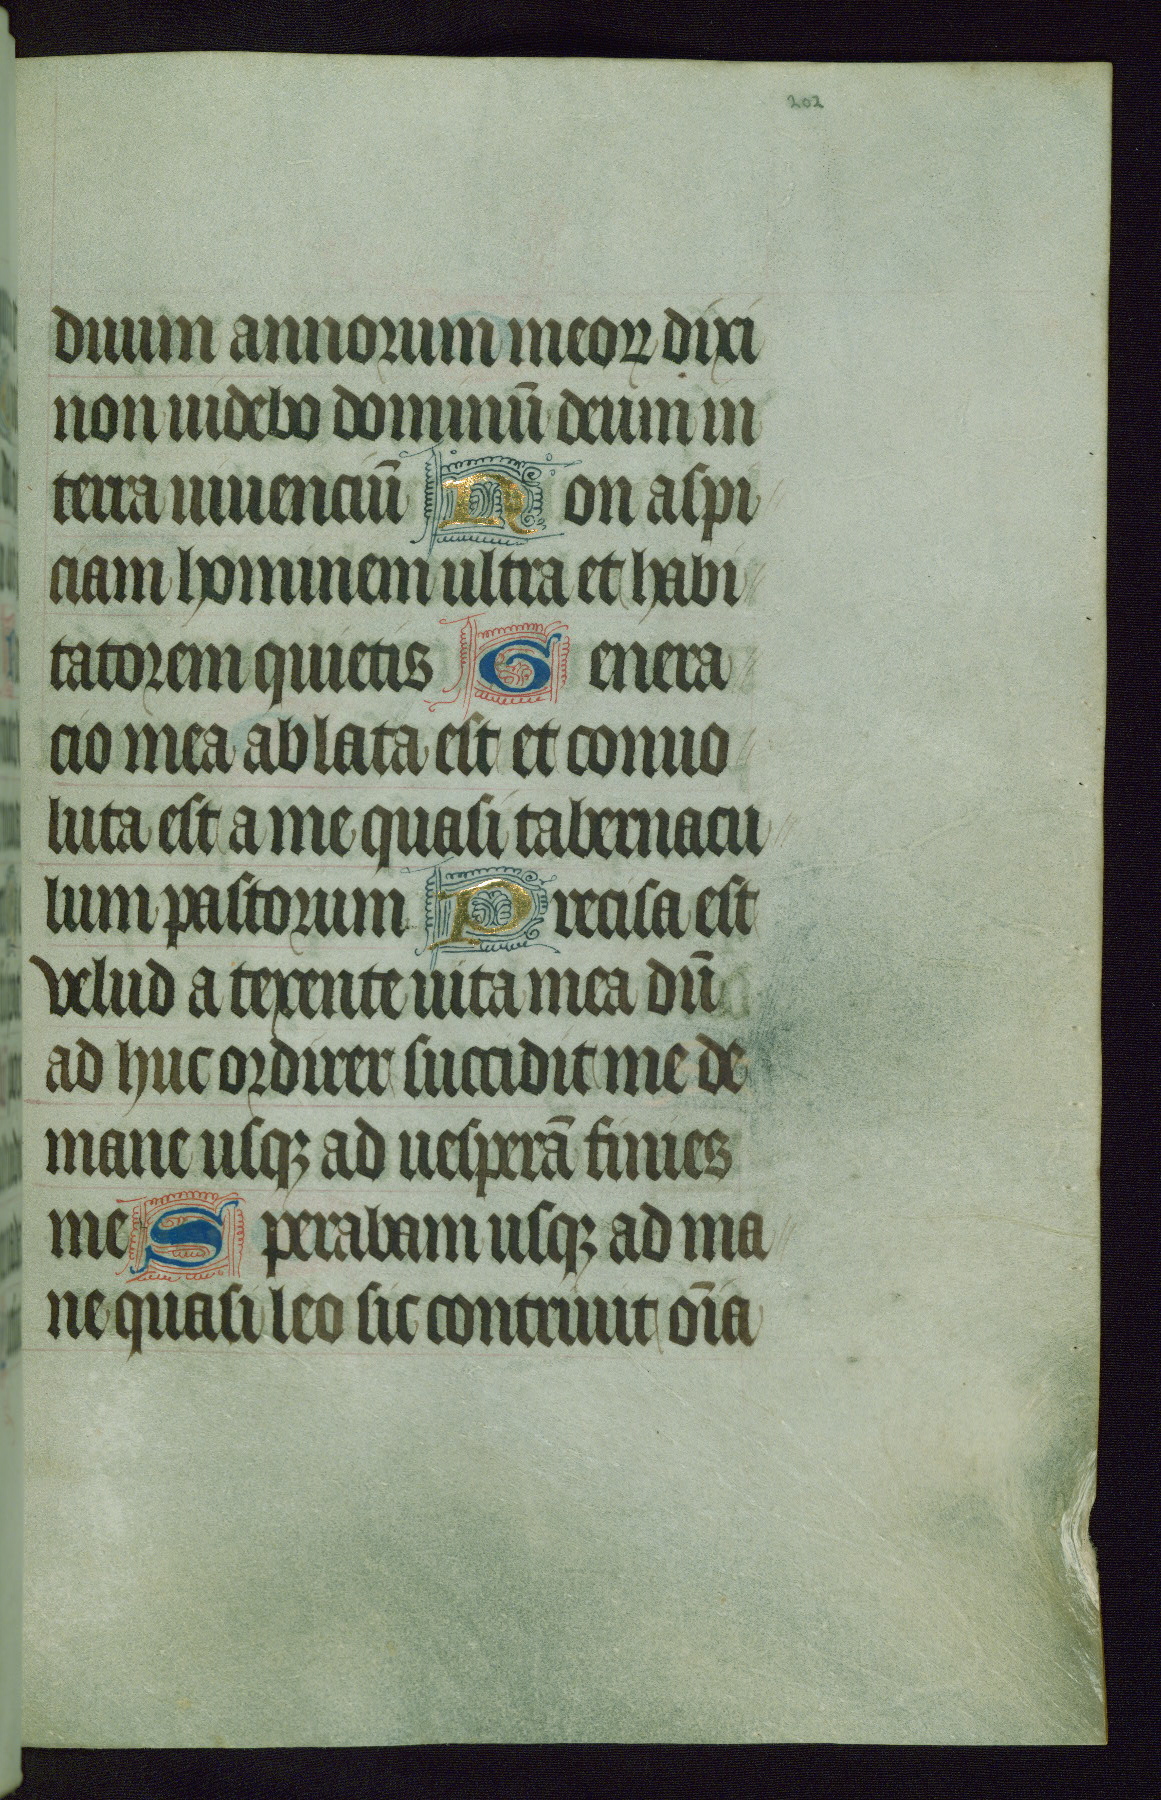 202
duum annorum meoꝝ dixi
non uidebo dominū deum in
terra uiuenciū Non aspi
ciam hominem ultra et habi
tatorem quietis Genera
cio mea ablata est et conuo
luta est a me quasi tabernacu
lum pastorum Precisa est
velud a texente uita mea dū
ad huc ordirer succidit me de
mane usqꝫ ad uesperā finies
me Sperabam usqꝫ ad ma
ne quasi leo sic contriuit oīa